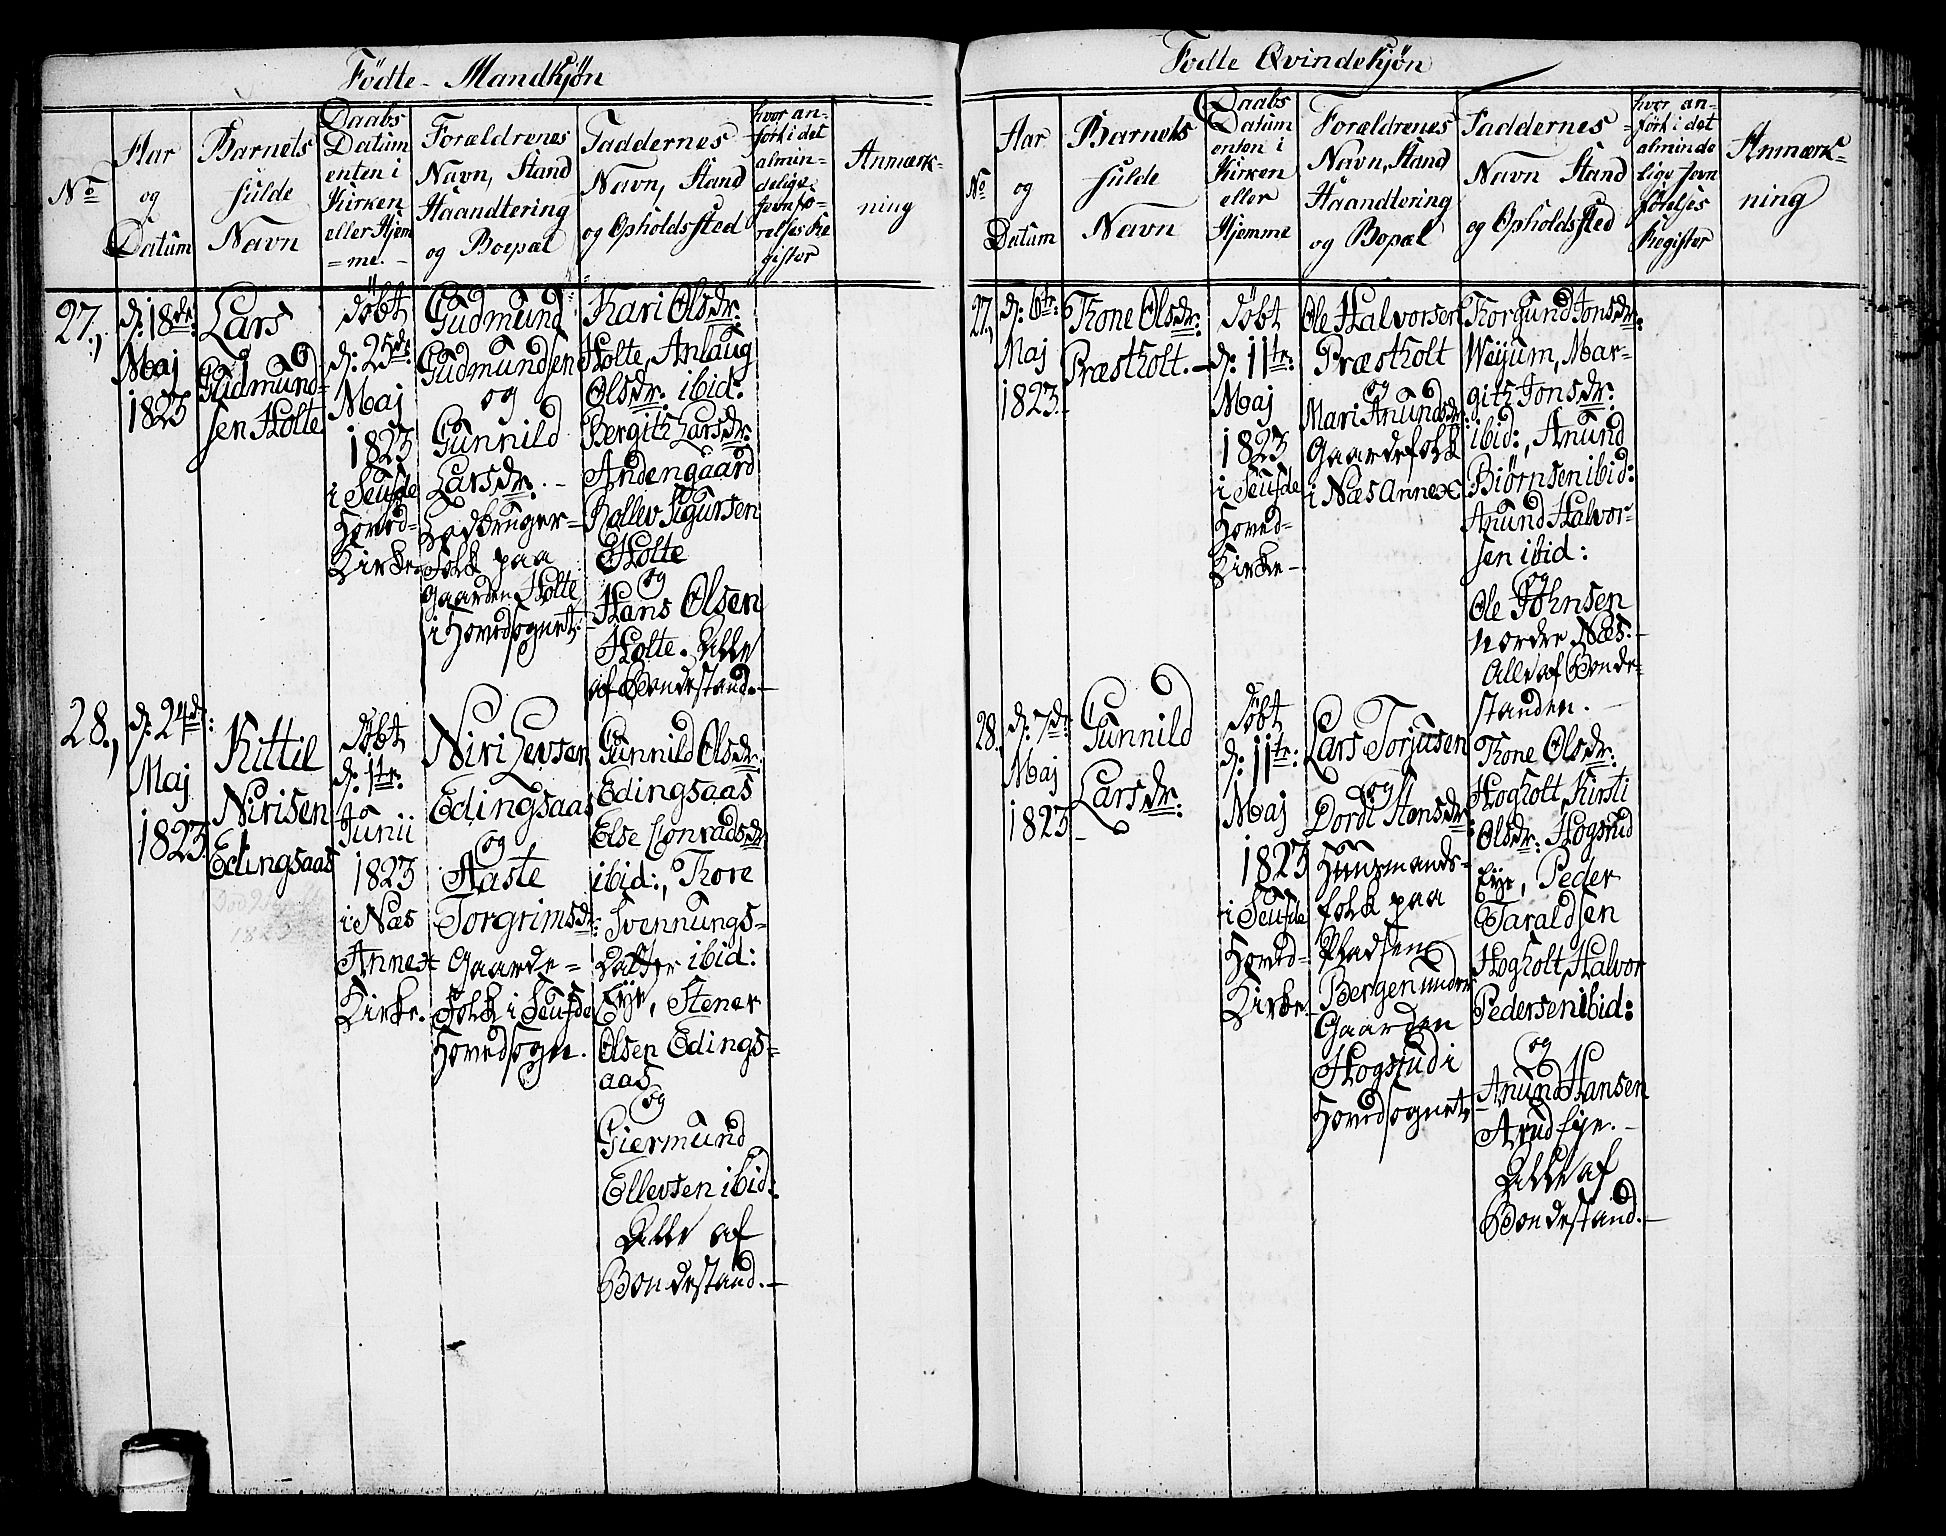 Födte - Mandkjøn
No
Aar
og
Datum
Barnets
fulde
Navn
Daabs
Datum
enten i
Kirken
eller Hjem
= me. -
Forældrenes
Navn, Stand
Haandtering
og Boepæl
Faddernes
Navn, Stand
og Opholdssted
hvor an-
ført i det
almin-
delige
Jevnfø-
relses Re
gister
Anmærk-
ning
27.,
d: 18de:
Maj
1823
Lars
Gudmund-
sen Holte
døbt
d: 25de
Maj
1823
i Seufde
Hoved-
Kirke
Gudmund
Gudmundsen
og
Gunnild
Larsdr. -
Lodbruger-
folk paa
Gaarden Holte
i Hovedsognet.
Kari Olsdr:
Holte, Anlaug
Olsdr. ibid:
Bergith Larsdr:
Andengaard
Rollev Sigursen
Holte
og
Hans Olsen
Holte. Alle
af Bondestand. -
28.,
d: 24de:
Maj
1823.
Kittil
Nirisen
Edingsaas
døbt
d: 1te:
Junii
1823
i Næs
Annex
Kirke.
Niri Levsen
Edingsaas
og
Aaste
Torgrimsdr:
Gaarde=
Folk i Seufde
Hovedsogn.
Gunnild Olsdr.
Edingsaas
Else Conradsdr
ibid:, Thore
Svennungs-
Datter ibid:
Eye, Stener
Olsen Edings=
aas
og
Giermund
Ellevsen ibid:
Alle af
Bondestand. -
Födte Qvindekjøn
No
Aar
og
Datum
Barnets
fulde
Navn
Daabs
Datum
enten i
Kirken
eller
Hjemme
Forældrenes
Navn, Stand
Haandtering
og Bopæl
Faddernes
Navn Stand
og Opholdssted
hvor an-
ført i det
alminde
lige Jevn
føreljes
Register
Anmærk=
ning
27.,
d: 6te:
Maj
1823.
Thone Olsdr:
Præstholt. -
døbt
d: 11te:
Maj
1823
i Seufde
Hoved-
Kirke -
Ole Halvorsen
Præstholt
og
Mari Anundsdr
Gaardefolk
i Næs Annex
Thorgund Jonsdr.
Weyum, Mar-
gith Jonsdr:
ibid:, Anund
Biørnsen ibid:
Anund Halvor-
sen ibid:
og
Ole Johnsen
Nordre Næs. -
Alle af Bonde-
standen. -
28.
d: 7de
Maj
1823. -
Gunnild
Larsdr:
døbt
d: 11te:
Maj
1823
i Seufde
Hoved-
Kirke. -
Lars Torjusen
og
Dordi Hansdr.
Huusmands-
folk paa
Pladsen
Bergen under
Gaarden
Hogstud i
Hovedsognet
Thone Olsdr:
Hogholt, Kirsti
Olsdr: Hogstud
Eye, Peder
Taraldsen
Hogholt, Halvor
Pedersen ibid:
og
Anund Hansen
Arud Eye. -
Alle af
Bondestand. -